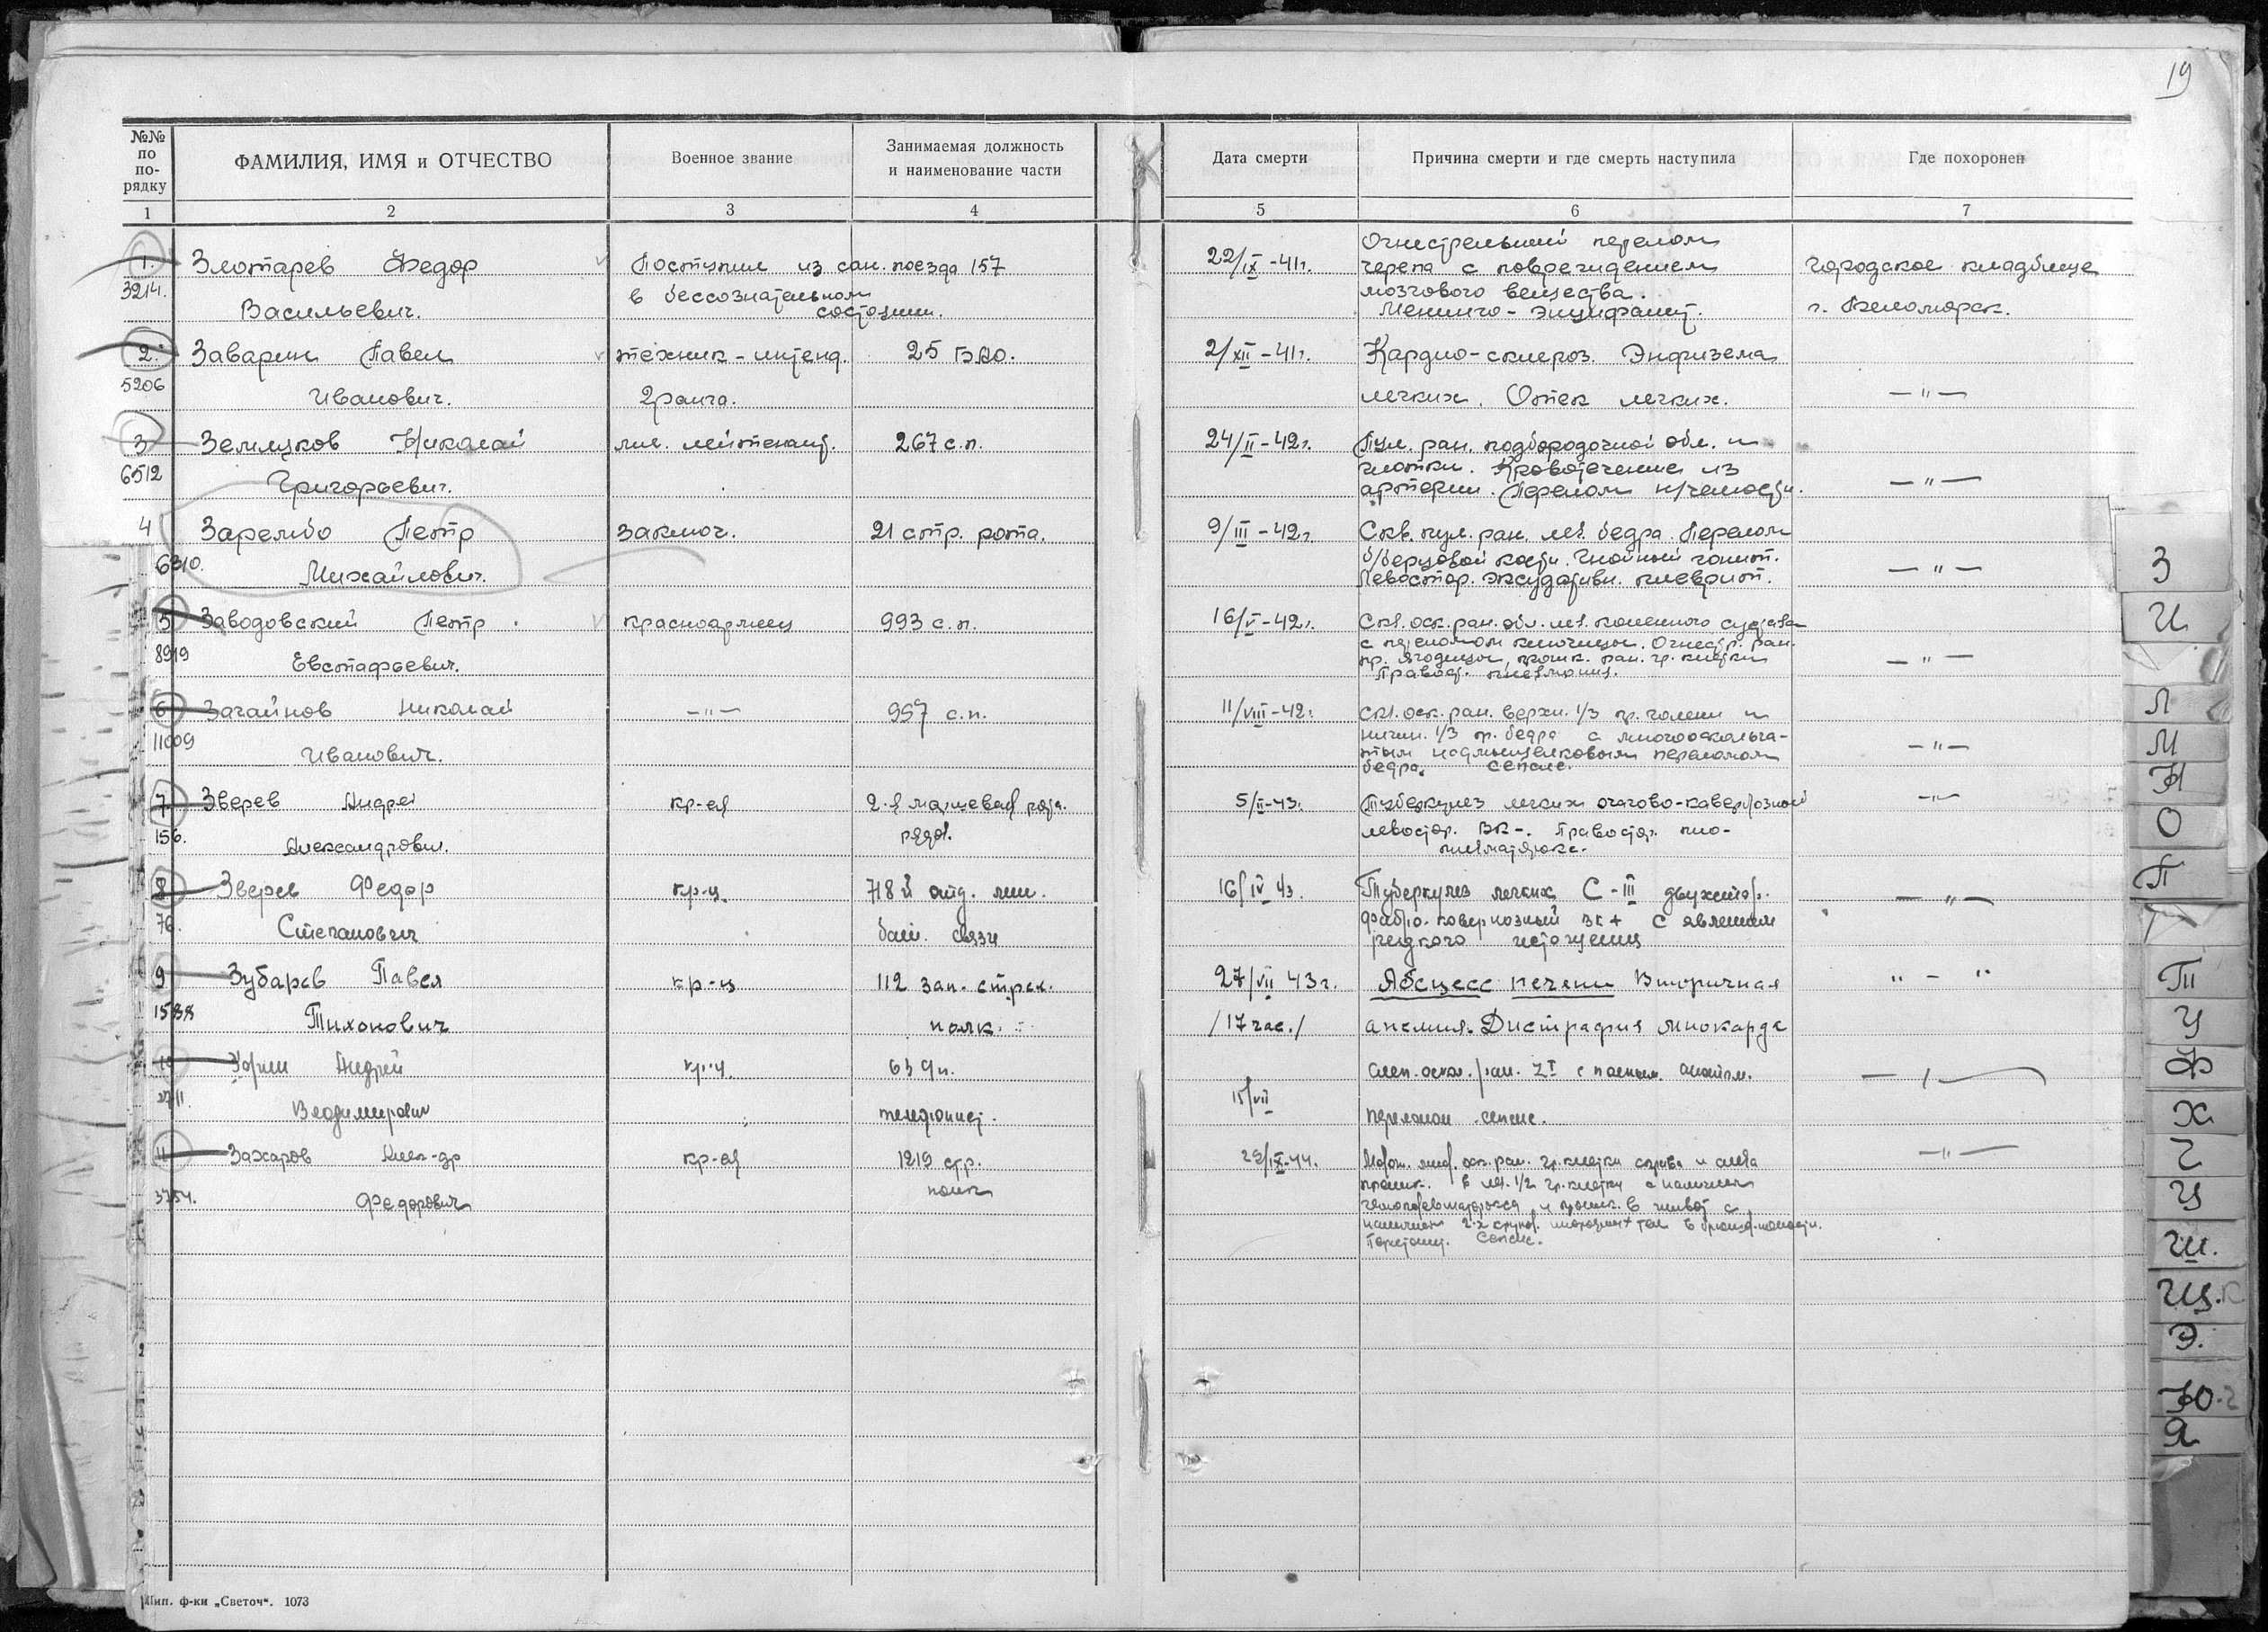 19
№№ по по-рядку
ФАМИЛИЯ, ИМЯ и ОТЧЕСТВО
Военное звание
Занимаемая должность
и наименование части
Дата смерти
Причина смерти и где смерть наступила
Где похоронен
1 2 3 4 5 6 7
1.
3214.
Злотарев Федор
Васильевич.
Поступил из сан. поезда 157
в бессознательном
состоянии.
22/IX-41г.
Огнестрельный перелом
черепа с повреждением
мозгового вещества.
Менинго-энцифалит.
Городское кладбище
г. Беломорск.
2.
5206
Заварин Павел
Иванович.
техник-интенд.
2 ранга.
25 ГЭЛО.
2/XII-41г.
Кардио-склероз. Энфизема
легких. Отек легких.
— " —
3
6512
Земцков Николай
Григорьевич.
мл. лейтенант.
267 с.п.
24/II-42г.
Пул. ран. подбородочной обл. и
глотки. Кровотечение из
артерии. Перелом н/челюсти.
— " —
4
6310.
Зарембо Петр
Михайлович.
заключ.
21 стр. рота.
9/III-42г.
Скв. пул. ран. лев. бедра. Перелом
б/берцовой кости. Гнойный гонит.
Левостор. экссудативн. плеврит.
— " —
5
8919
Заводовский Петр
Евстафьевич.
красноармеец
993 с.п.
16/V-42г.
Скв. оск. ран. обл. лев. коленного сустава
с переломом ключицы. Огнестр. ран.
пр. ягодицы, проник. ран. гр. клетки
Правост. пневмония.
— " —
6
11009
Зачайнов Николай
Иванович.
— " —
997 с.п.
11/VIII-42г.
Скв. оск. ран. верхн. 1/3 пр. голени и
нижн. 1/3 пр. бедра с многооскольча-
тым надмыщелковым переломом
бедра. Сепсис.
— " —
7.
156.
Зверев Андрей
Александрович.
кр-ец
2-я маршевая рота.
рядов.
5/II-43г.
Туберкулез легких очагово-кавернозный
левостор. ВК-. Правостор. пио-
пневматоракс.
— " —
8
76.
Зверев Федор
Степанович
кр-ц.
718й отд. лин.
бат. связи
16/IV 43.
Туберкулез легких С-III двухстор.
Фибро-кавернозный вк+ с явлением
резкого истощения
— " —
9
1588
Зубарев Павел
Тихонович
кр-ц
112 зап. стрел.
полк.
27/VII 43г.
/17 час./
Абсцесс печени Вторичная
анемия. Дистрафия миокарда
" - "
10
2711.
Зорин Андрей
Владимирович
кр-ц.
телефонист.
15/VII
слеп. оскол. ран.
переломом сепсис.
11
3754.
Захаров Алек-др
Федорович
кр-ец
1219 стр.
полк
29/IX-44.
оск. ран. гр. клетки справа и слева
проник. в лев. 1/2 гр. клетки с наличием
гемопневматоракса и проник. в живот с
наличием 2-х крупн. инородных тел в брюшн. полости.
Перитонит. Сепсис.
— " —
З
И
Л
М
Н
О
П
Т
У
Ф
Х
Ч
Ц
Ш.
Щ.
Э.
Ю.
Я
Тип. ф-ки „Светоч“. 1073